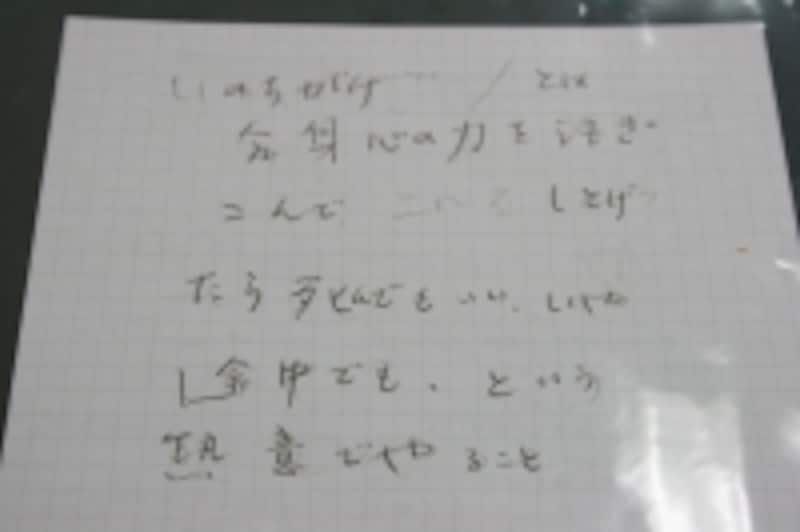 いのちがけ…… / とは
全身心の力を注ぎ
こんで これを しとげ
たら死んでもいい、いや
し余中でも、という
熱意でやること